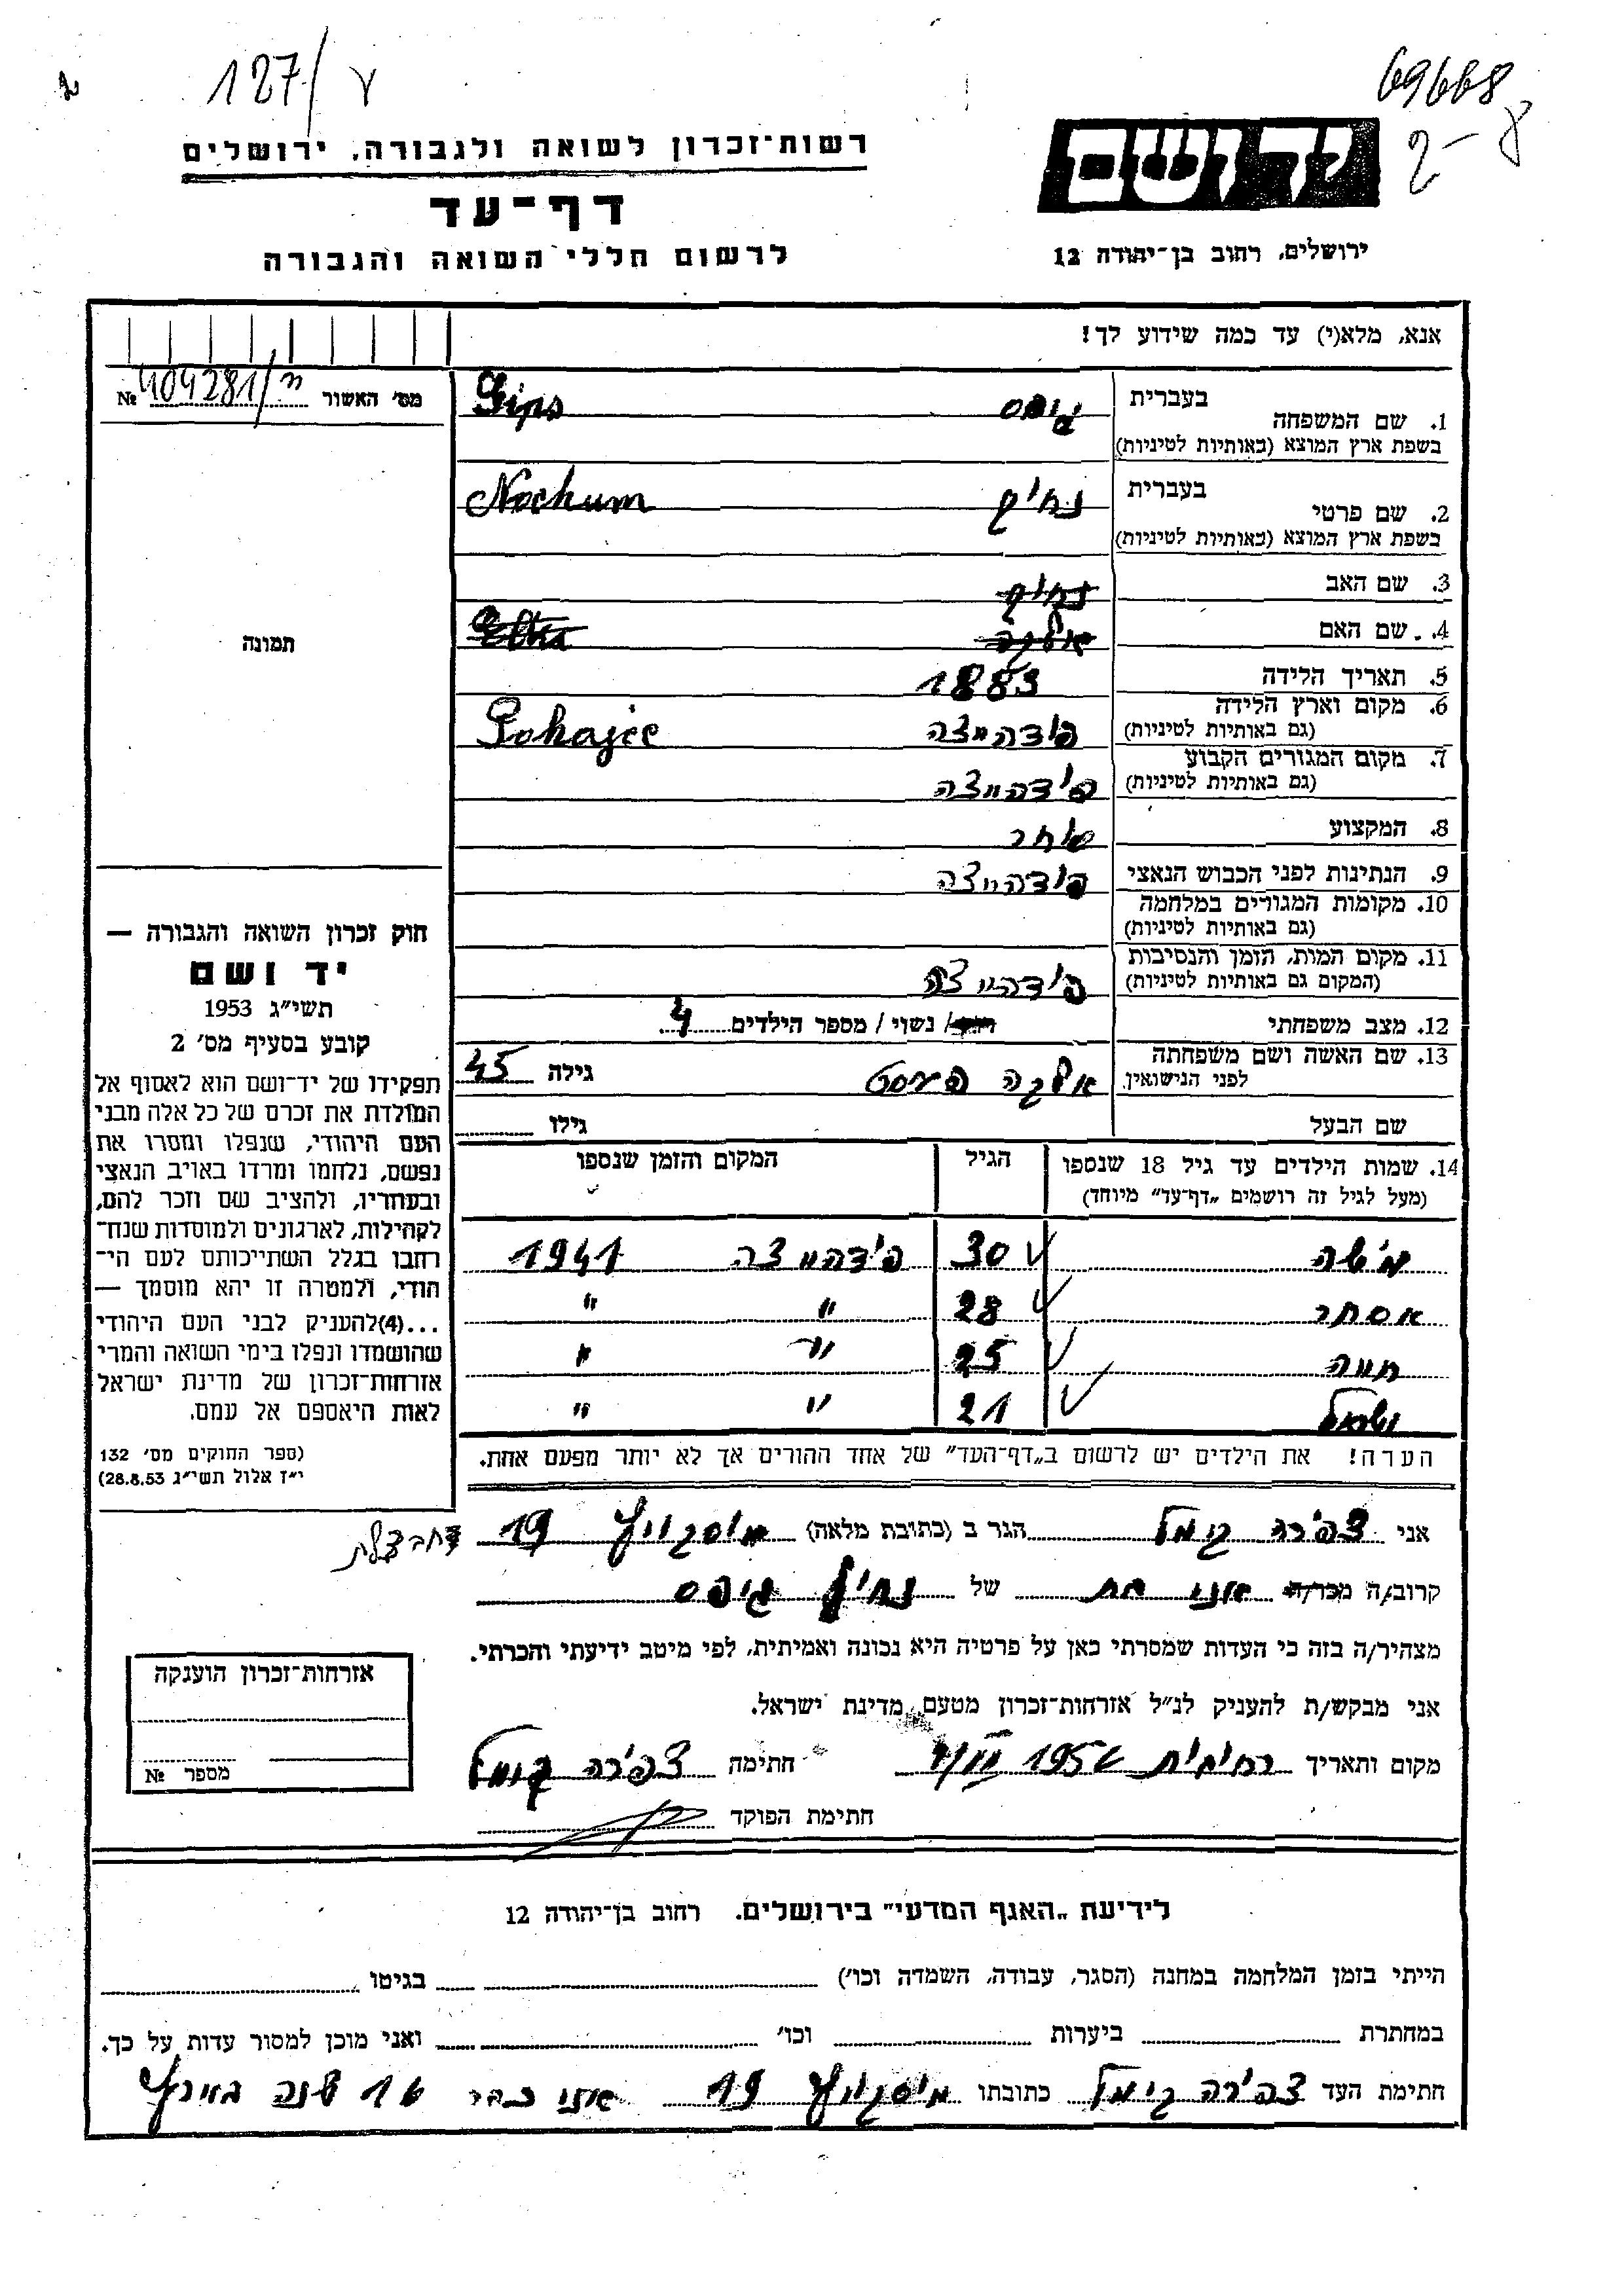 127/ג
69668
רשות־זכרון לשואה ולגבורה, ירושלים
יד ושם
דף־עד
ירושלים, רחוב בן־יהודה 12
לרשום חללי השואה והגבורה
אנא, מלא(י) עד כמה שידוע לך!
מס׳ האשור № 104281/
בעברית
1. שם המשפחה גיפס Gips
בשפת ארץ המוצא (באותיות לטיניות)
בעברית
2. שם פרטי נחום Nochum
בשפת ארץ המוצא (באותיות לטיניות)
3. שם האב נחום
4. שם האם אלקה Elka
תמונה
5. תאריך הלידה 1883
6. מקום וארץ הלידה פודהייצה
(גם באותיות לטיניות)
7. מקום המגורים הקבוע פודהייצה
(גם באותיות לטיניות)
8. המקצוע סוחר
9. הנתינות לפני הכבוש הנאצי פודהייצה
10. מקומות המגורים במלחמה
(גם באותיות לטיניות)
11. מקום המות, הזמן והנסיבות פודהייצה
(המקום גם באותיות לטיניות)
12. מצב משפחתי רווק/ נשוי / מספר הילדים 4
13. שם האשה ושם משפחתה אלקה גילה 45
לפני הנישואין
שם הבעל גילו
14. שמות הילדים עד גיל 18 שנספו הגיל המקום והזמן שנספו
(מעל לגיל זה רושמים „דף־עד” מיוחד)
משה 30 פודהייצה 1941
אסתר 28 " "
חווה 25 " "
ישראל 21 " "
הערה! את הילדים יש לרשום ב„דף־העד” של אחד ההורים אך לא יותר מפעם אחת.
חוק זכרון השואה והגבורה —
יד ושם
תשי״ג 1953
קובע בסעיף מס׳ 2
תפקידו של יד־ושם הוא לאסוף אל
המולדת את זכרם של כל אלה מבני
העם היהודי, שנפלו ומסרו את
נפשם, נלחמו ומרדו באויב הנאצי
ובעוזריו, ולהציב שם וזכר להם,
לקהילות, לארגונים ולמוסדות שנח־
רבו בגלל השתייכותם לעם הי־
הודי, ולמטרה זו יהא מוסמך —
...(4)להעניק לבני העם היהודי
שהושמדו ונפלו בימי השואה והמרי
אזרחות־זכרון של מדינת ישראל
לאות היאספם אל עמם.
(ספר החוקים מס׳ 132
י״ז אלול תשי״ג 28.8.53)
אני צפירה קימל הגר ב (כתובת מלאה) מוסקוביץ 19
קרוב/ה מכר/ה אני בת של נחום גיפס
מצהיר/ה בזה כי העדות שמסרתי כאן על פרטיה היא נכונה ואמיתית, לפי מיטב ידיעתי והכרתי.
אני מבקש/ת להעניק לנ״ל אזרחות־זכרון מטעם מדינת ישראל.
מקום ותאריך חתימה צפירה קימל
חתימת הפוקד
אזרחות־זכרון הוענקה
מספר №
לידיעת „האגף המדעי” בירושלים, רחוב בן־יהודה 12
הייתי בזמן המלחמה במחנה (הסגר, עבודה, השמדה וכו׳) בגיטו
במחתרת ביערות וכו׳ ואני מוכן למסור עדות על כך.
חתימת העד צפירה קימל כתובתו מוסקוביץ 19 אני כבר 16 שנה בארץ